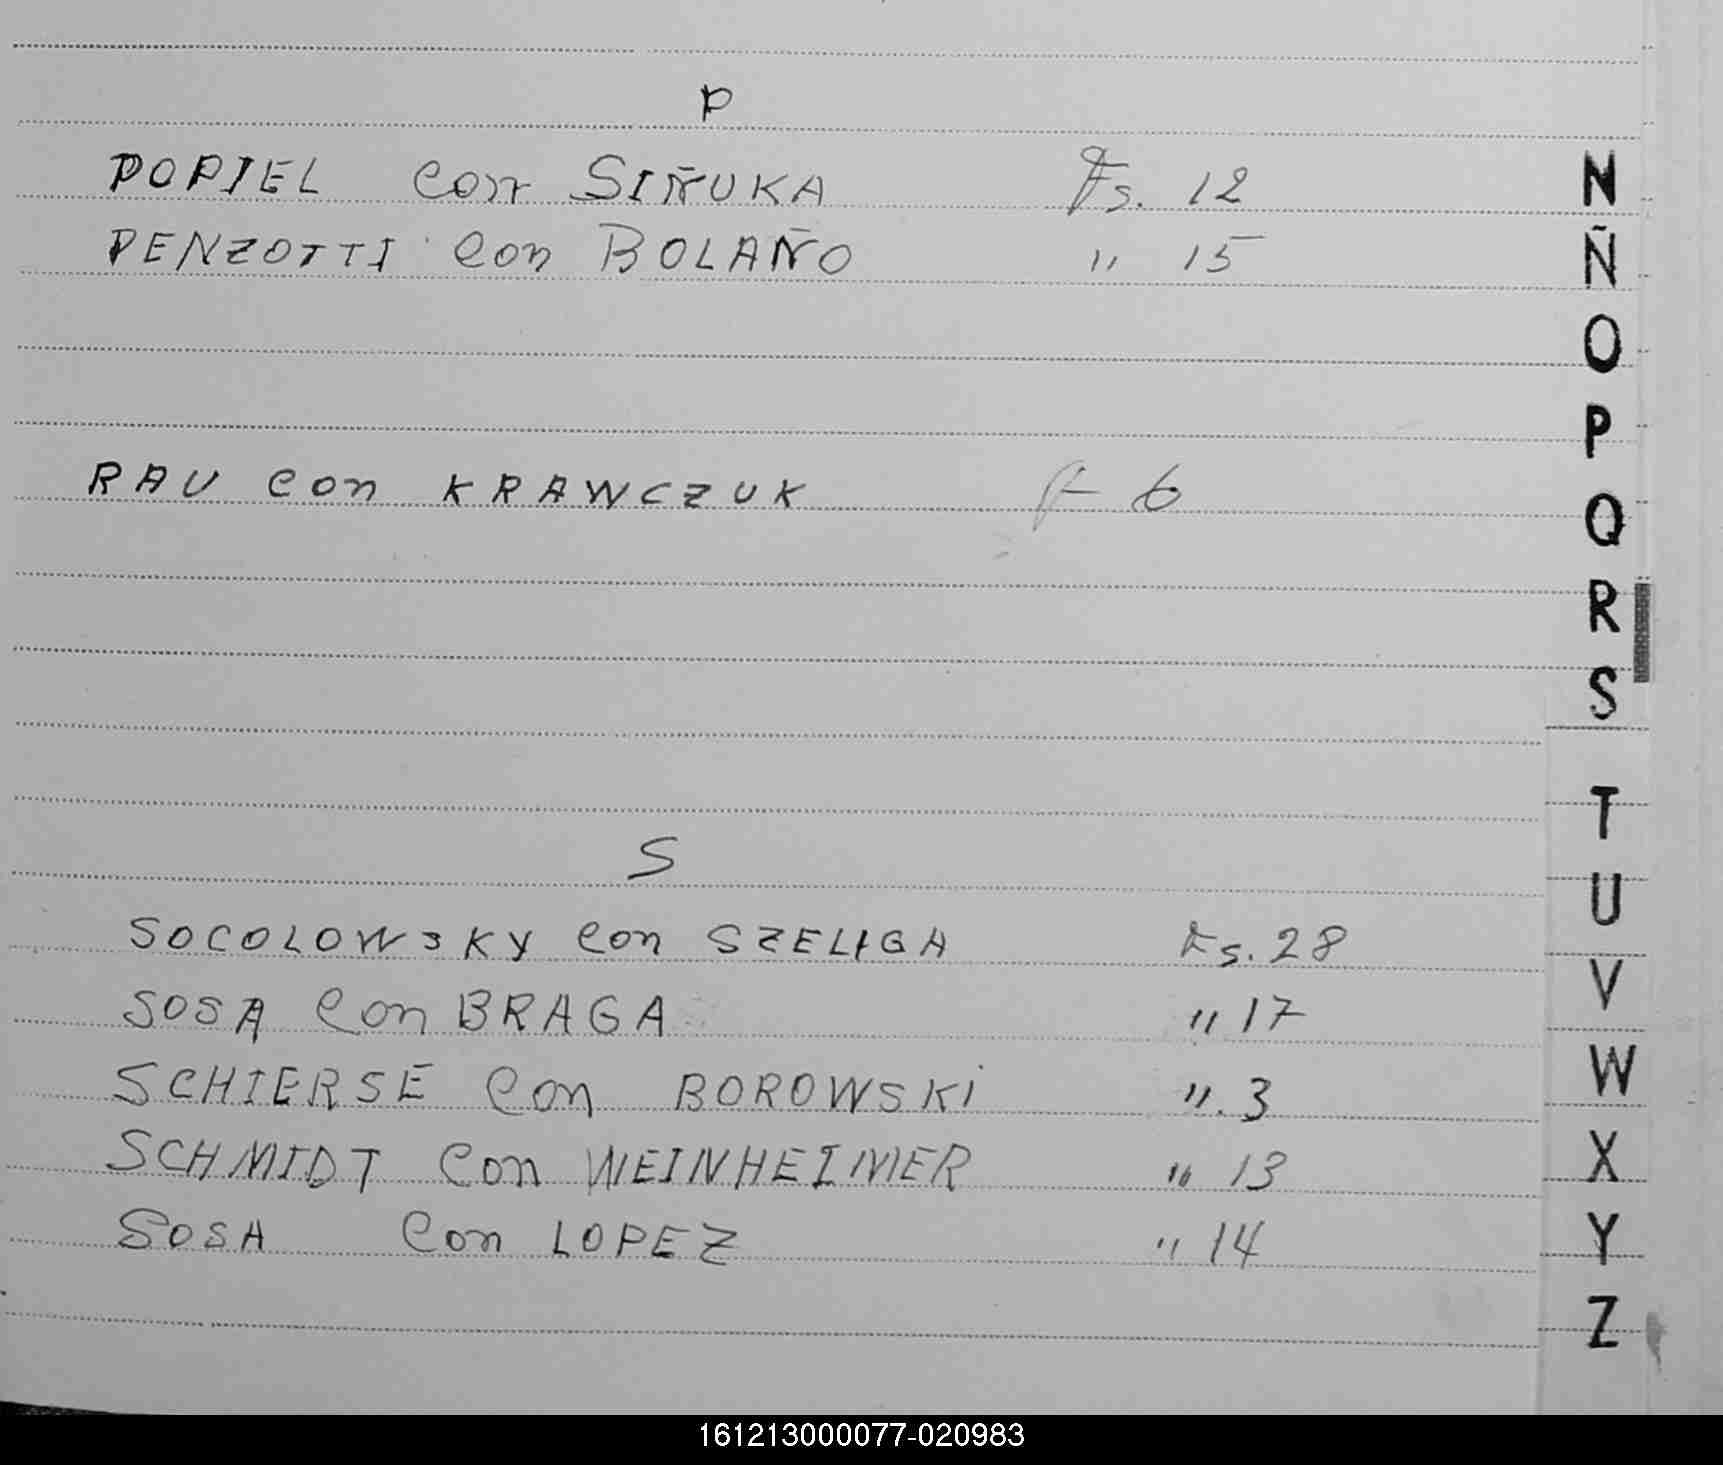 P
POPIEL con SIÑUKA Fs. 12
PENZOTTI con BOLAÑO " 15
RAU con KRAWCZUK F 6
S
SOCOLOWSKY con SZELIGA Fs. 28
SOSA con BRAGA " 17
SCHIERSE con BOROWSKi ". 3
SCHMIDT con WEINHEIMER " 13
SOSA con LOPEZ " 14
N
Ñ
O
P
Q
R
S
T
U
V
W
X
Y
Z
161213000077-020983